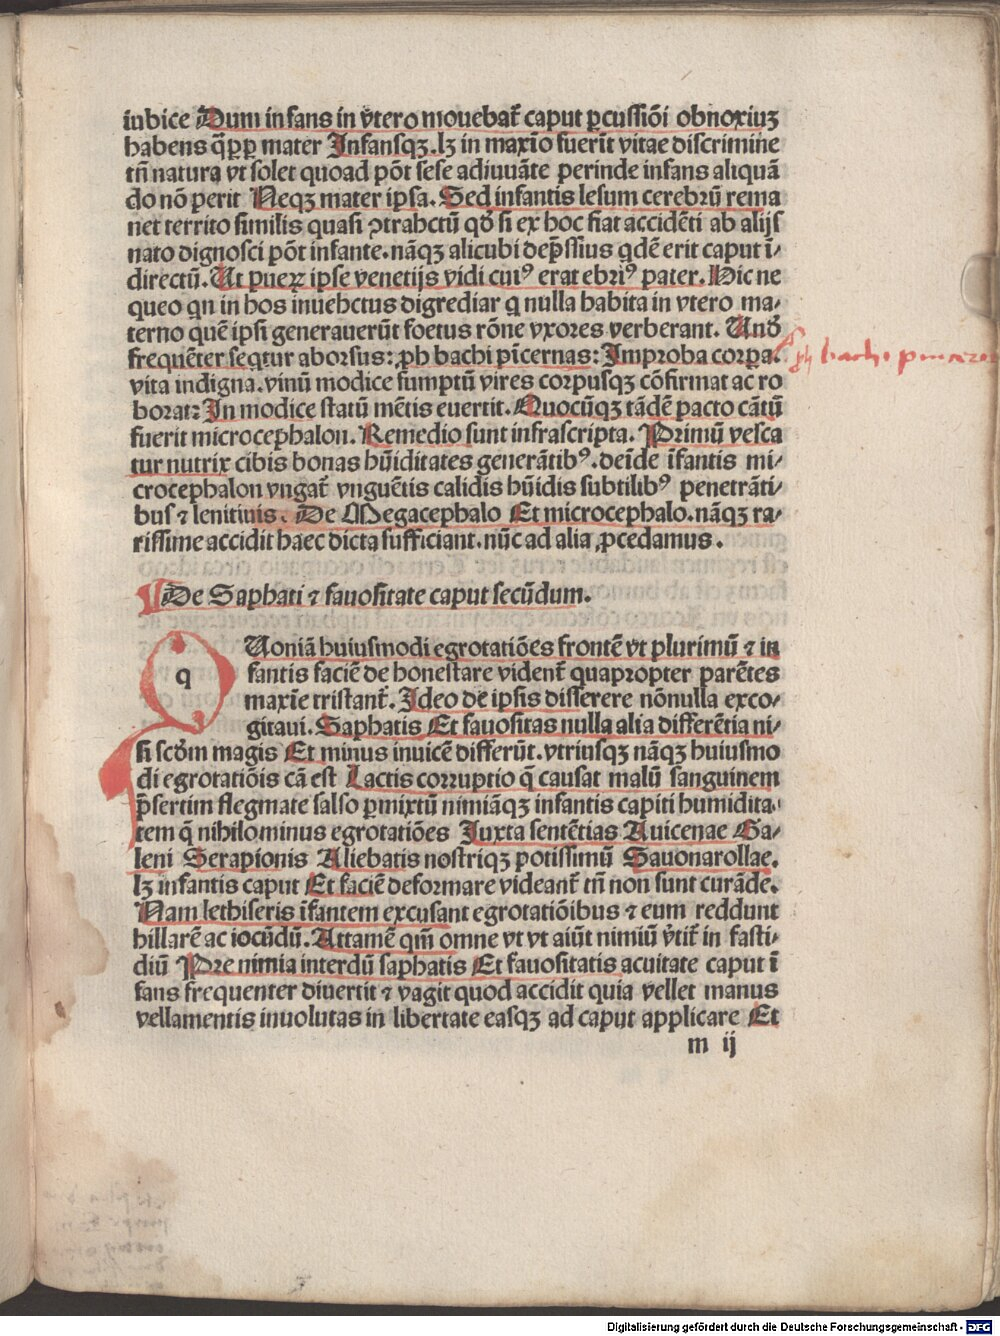 iubice Dum infans in vtero mouebat̃ caput ꝑcussiõi obnoxiuꝫ
habens q̃ꝓꝑ mater Infansqꝫ.lꝫ in maxĩo fuerit vitae discrimine
tñ natura vt solet quoad põt sese adiuuãte perinde infans aliquã
do nõ perit Neqꝫ mater ipsa. Sed infantis lesum cerebrũ rema
net territo similis quasi ꝯtrahctũ qđ si ex hoc fiat accidẽti ab alijs
nato dignosci põt infante.nãqꝫ alicubi dep̃ssius qdẽ erit caput ĩ⸗
directũ. Ut pueꝝ ipse venetijs vidi cuiꝰ erat ebriꝰ pater. Hic ne
queo qn in hos inuehctus digrediar q nulla habita in vtero ma⸗
terno quẽ ipsi generauerũt foetus rõne vxores verberant. Unđ
frequẽter seqtur aborsus: ꝓh bachi pĩcernas: Improba corꝑa.
ꝓh bachi pincernas
vita indigna.vinũ modice sumptũ vires corpusqꝫ cõfirmat ac ro
borat: In modice statũ mẽtis euertit. Quocũqꝫ tãdẽ pacto cãtũ
fuerit microcephalon. Remedio sunt infrascripta. Primũ vesca
tur nutrix cibis bonas hũiditates generãtibꝰ.deĩde ĩfantis mi⸗
crocephalon vngat̃ vnguẽtis calidis hũidis subtilibꝰ penetrãti⸗
bus ⁊ lenitiuis. De Megacephalo Et microcephalo.nãqꝫ ra⸗
rissime accidit haec dicta sufficiant.nũc ad alia ꝓcedamus.
De Saphati ⁊ fauositate caput secũdum.
QUoniã huiusmodi egrotatiões frontẽ vt plurimũ ⁊ in
fantis faciẽ de honestare vident̃ quapropter parẽtes
maxĩe tristant̃. Ideo de ipsis disserere nõnulla exco⸗
gitaui. Saphatis Et fauositas nulla alia differẽtia ni⸗
si scđm magis Et minus inuicẽ differũt.vtriusqꝫ nãqꝫ huiusmo
di egrotatiõis cã est Lactis corruptio q̃ causat malũ sanguinem
p̃sertim flegmate salso ꝑmixtũ nimiãqꝫ infantis capiti humidita⸗
tem q̃ nihilominus egrotatiões Iuxta sentẽtias Auicenae Ga⸗
leni Serapionis Aliebatis nostriqꝫ potissimũ Sauonarollae.
lꝫ infantis caput Et faciẽ deformare videant̃ tñ non sunt curãde.
Nam lethiferis ĩfantem excusant egrotatiõibus ⁊ eum reddunt
hillarẽ ac iocũdũ. Attamẽ qm̃ omne vt vt aiũt nimiũ v̈tit̃ in fasti⸗
diũ Pre nimia interdũ saphatis Et fauositatis acuitate caput ĩ
fans frequenter diuertit ⁊ vagit quod accidit quia vellet manus
vellamentis inuolutas in libertate easqꝫ ad caput applicare Et
m ij
Digitalisierung gefördert durch die Deutsche Forschungsgemeinschaft - DFG